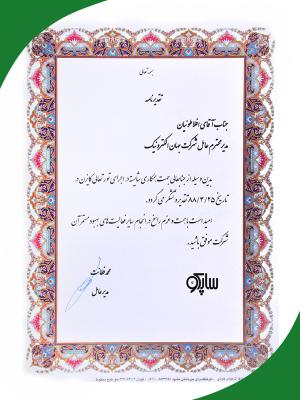 بسمه تعالی
تقدیرنامه
جناب آقای افلاطونیان
مدیر محترم عامل شرکت جهان الکترونیک
بدین وسیله از جنابعالی جهت همکاری شایسته در اجرای تور تعالی کایزن در
تاریخ ۸۸/۳/۲۵ تقدیر و تشکر می گردد.
امید است با همت و عزم راسخ در انجام سایر فعالیت های بهبود مستمر آن
شرکت موفق باشید.
محمد
مدیرعامل
ساپکو